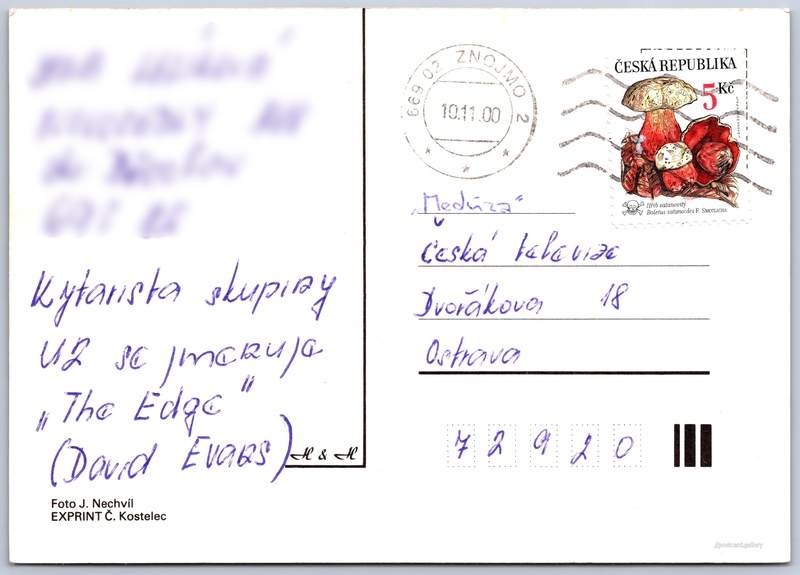 Kytarista skupiny
U2 se jmenuje
„The Edge"
(David Evans)
H & H
Foto J. Nechvíl
EXPRINT Č. Kostelec
669 02 ZNOJMO 2
10.11.00
ČESKÁ REPUBLIKA
5 Kč
Hřib satanovitý
Boletus satanoides F. SMOTLACHA
„Medúza"
Česká televize
Dvořákova 18
Ostrava
7 2 9 2 0
//postcard.gallery